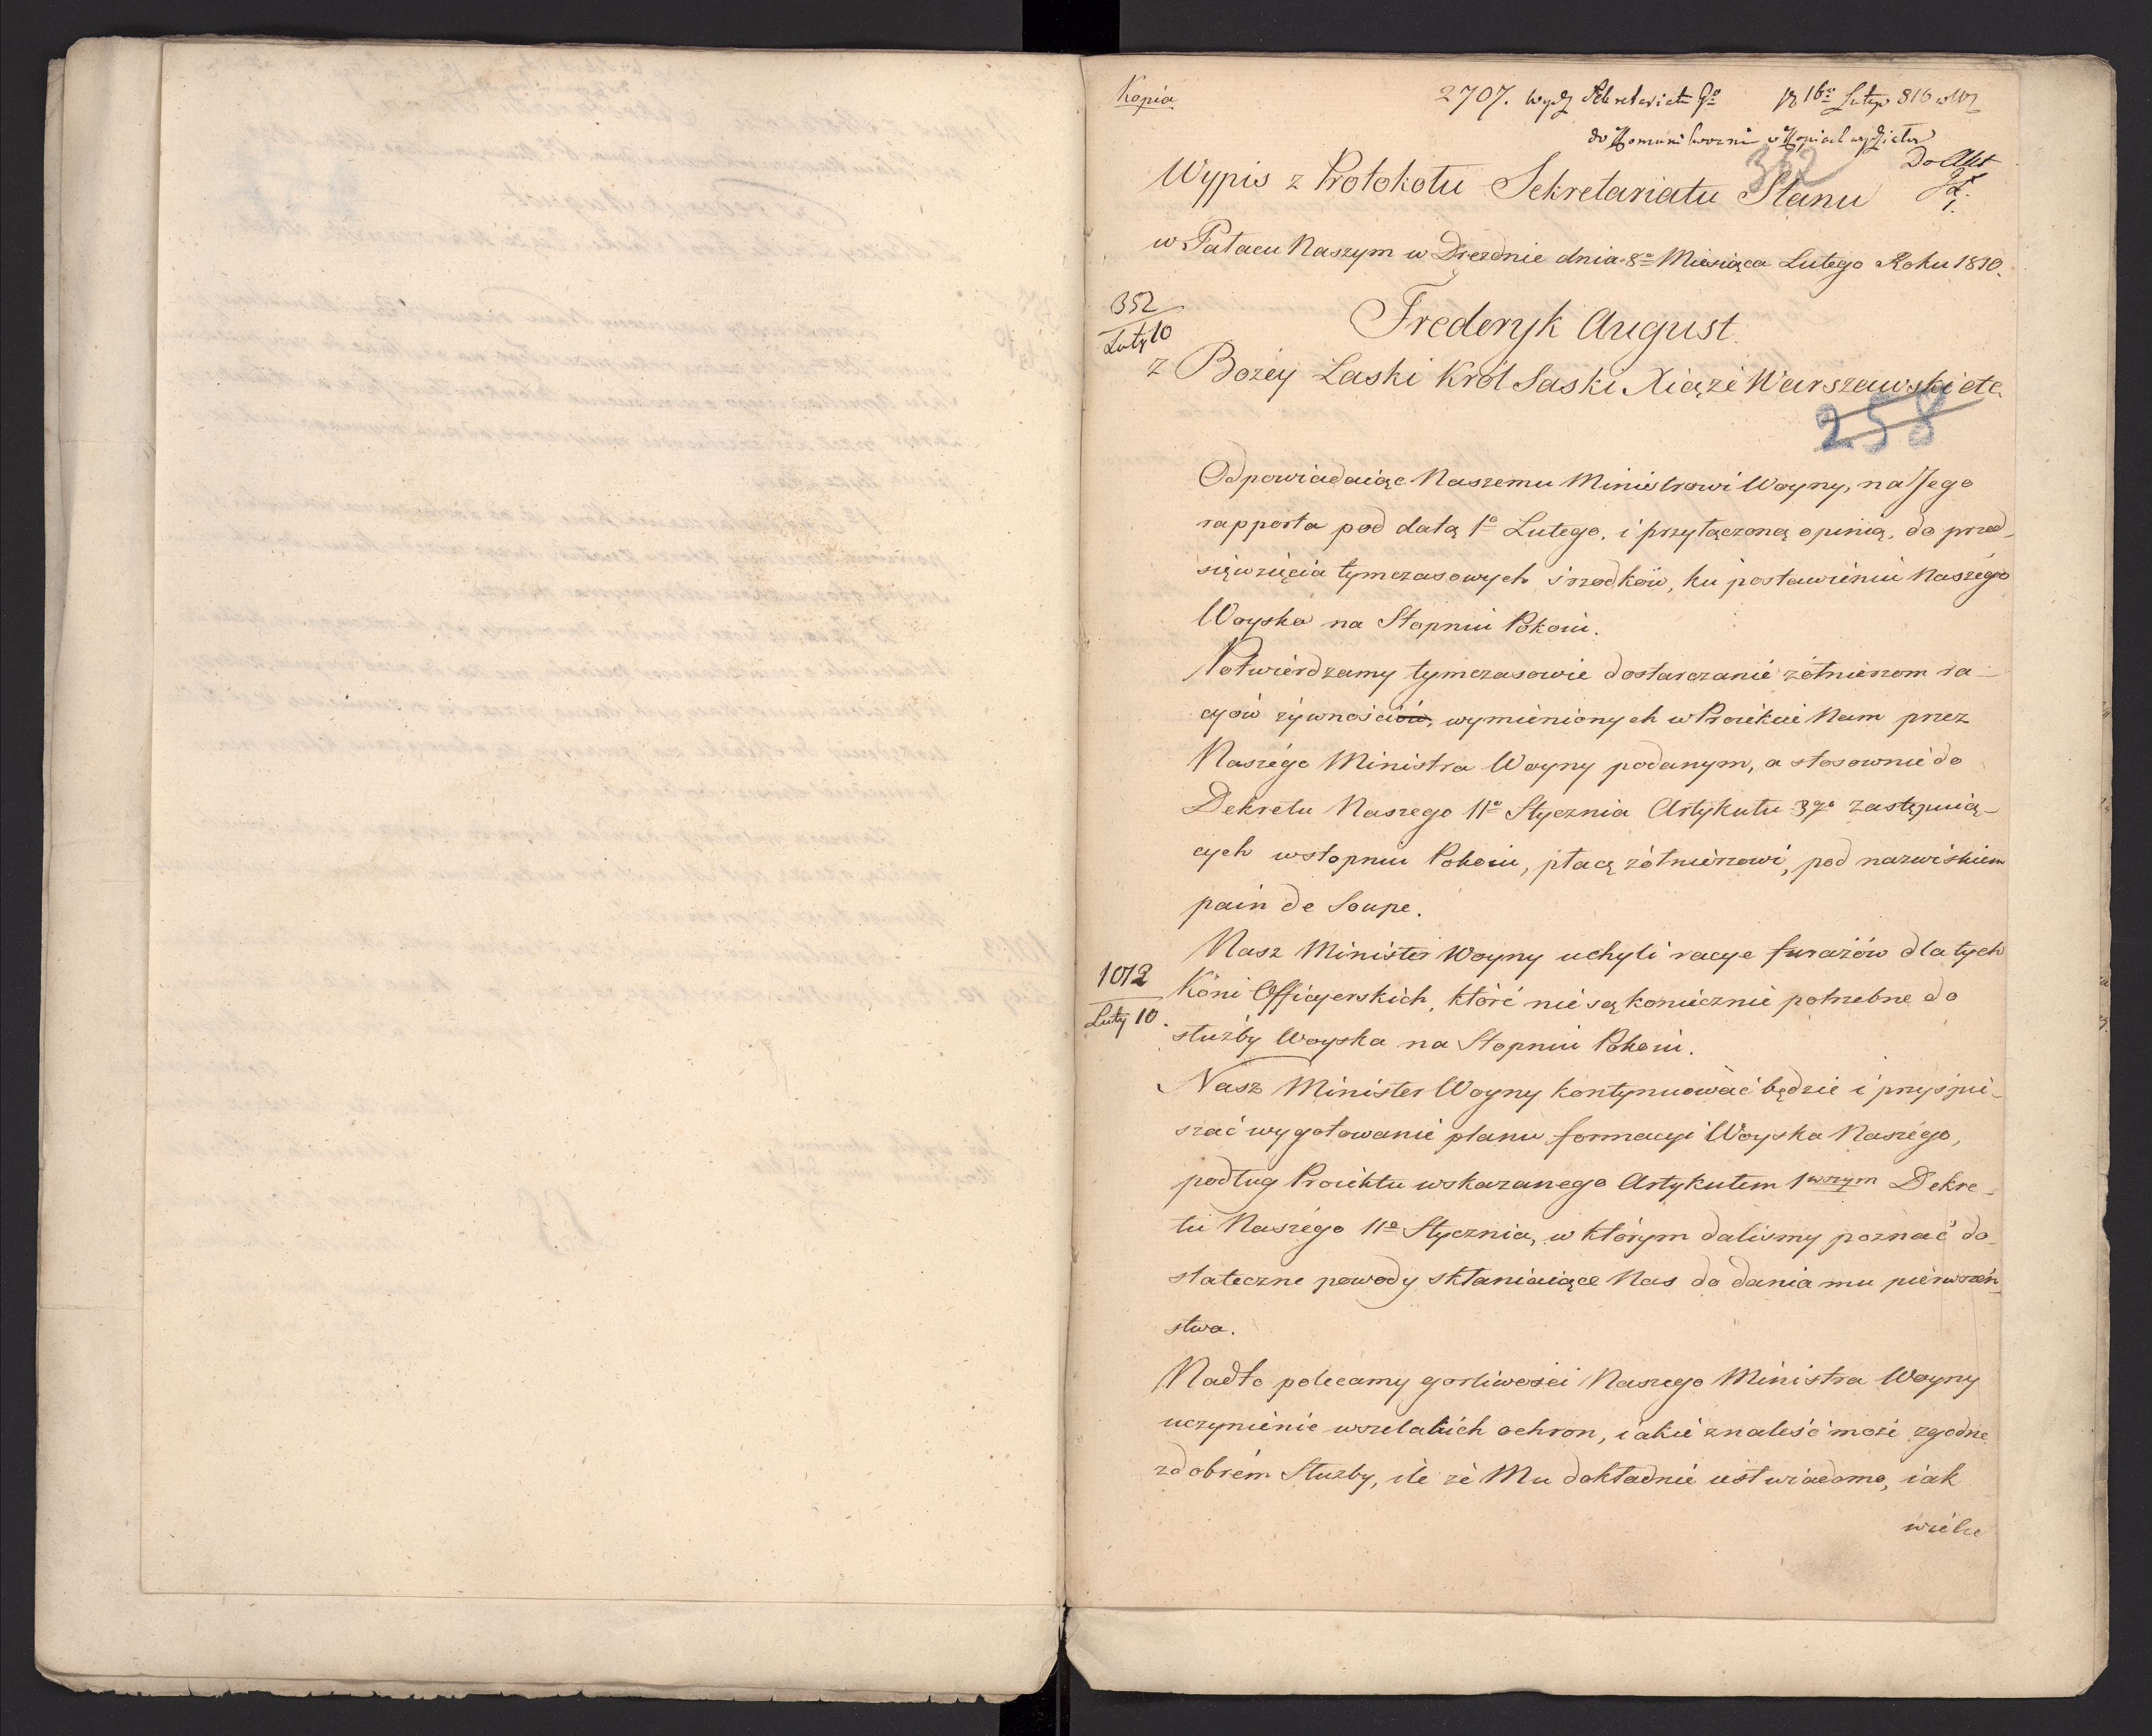 Kopia
2707. Wydz Sekretariatu Gº 16º Lutego 810
do Kommunikowania w Kopiach wydziału
Do Akt
362
Wypis z Protokołu Sekretariatu Stanu
w Pałacu Naszym w Dreznie dnia 8º Miesiąca Lutego Roku 1810.
352
Luty 10
Frederyk August.
z Bożey Łaski Król Saski Xiążę Warszawski etc.
258
Odpowiadaiąc Naszemu Ministrowi Woyny, na Jego
rapporta pod datą 1º Lutego, i przyłączoną opinią, do przed-
sięwzięcia tymczasowych srzodków, ku postawieniu Naszego
Woyska na Stopniu Pokoiu.
Potwierdzamy tymczasowie dostarczanie żołnierzom ra-
cyów żywności, wymienionych w Proiekcie Nam przez
Naszego Ministra Woyny podanym, a stosownie do
Dekretu Naszego 11º Stycznia Artykułu 3go zastępuią-
cych w stopniu Pokoiu, płacę żołnierzowi, pod nazwiskiem
pain de Soupe.
Nasz Minister Woyny uchyli racye furażów dla tych
1012
Luty 10.
Koni Officyerskich, które nie są koniecznie potrzebne do
służby Woyska na Stopniu Pokoiu.
Nasz Minister Woyny kontynuować będzie i przyspie-
szać wygotowanie planu formacyi Woyska Naszego,
podług Proiektu wskazanego Artykułem 1wszym Dekre-
tu Naszego 11º Stycznia, w którym daliśmy poznać do-
stateczne powody skłaniaiące Nas do dania mu pierwszeń-
stwa.
Nadto polecamy gorliwości Naszego Ministra Woyny
uczynienie wszelakich ochron, iakie znaleść może zgodne
z dobrem Służby, ile że Mu dokładnie iest wiadomo, iak
wielu